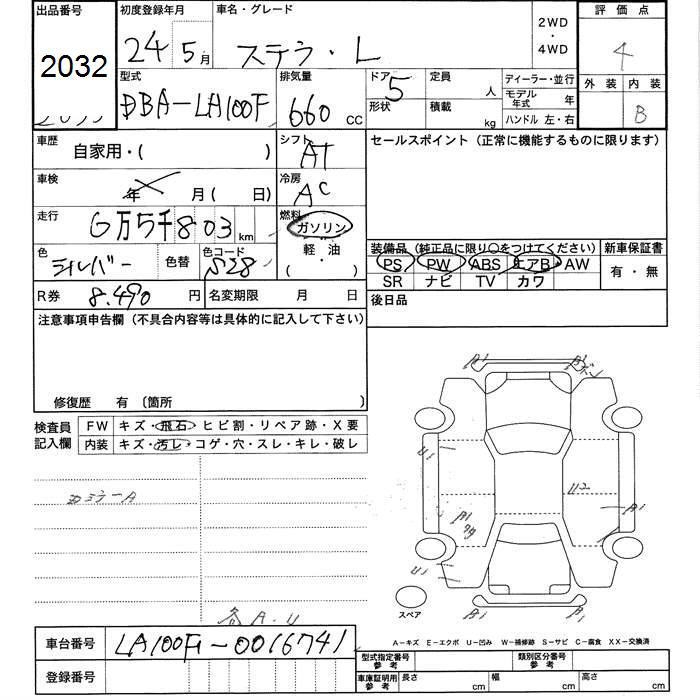 出品番号 初度登録年月 車名・グレード 2WD・4WD 評価点
2032 24 5月 ステラ・L 4
型式 排気量 ドア 5 定員 人 ディーラー・並行 外装 内装
DBA-LA100F 660 CC 形状 積載 kg モデル年式 年 B
ハンドル 左・右
車歴 自家用・( ) シフト AT セールスポイント(正常に機能するものに限ります)
車検 年 月( 日) 冷房 AC
走行 6万5千803 km 燃料 ガソリン
軽・油
( ・ )
色 シルバー 色替 色コード S28 装備品(純正品に限り○をつけてください) 新車保証書
PS PW ABS エアB AW 有・無
SR ナビ TV カワ
R券 8,490 円 名変期限 月 日 後日品
注意事項申告欄(不具合内容等は具体的に記入して下さい)
修復歴 有 〔箇所 〕
検査員記入欄 FW キズ・飛石・ヒビ割・リペア跡・X要
内装 キズ・汚レ・コゲ・穴・スレ・キレ・破レ
A1 A1
U1
U2 A1
A1
U1
スペア
A1 A1
各A.U
A-キズ E-エクボ U-凹み W-補修跡 S-サビ C-腐食 XX-交換済
車台番号 LA100F-0016741
登録番号
型式指定番号 参考 類別区分番号 参考
車庫証明用 参考 長さ cm 幅 cm 高さ cm